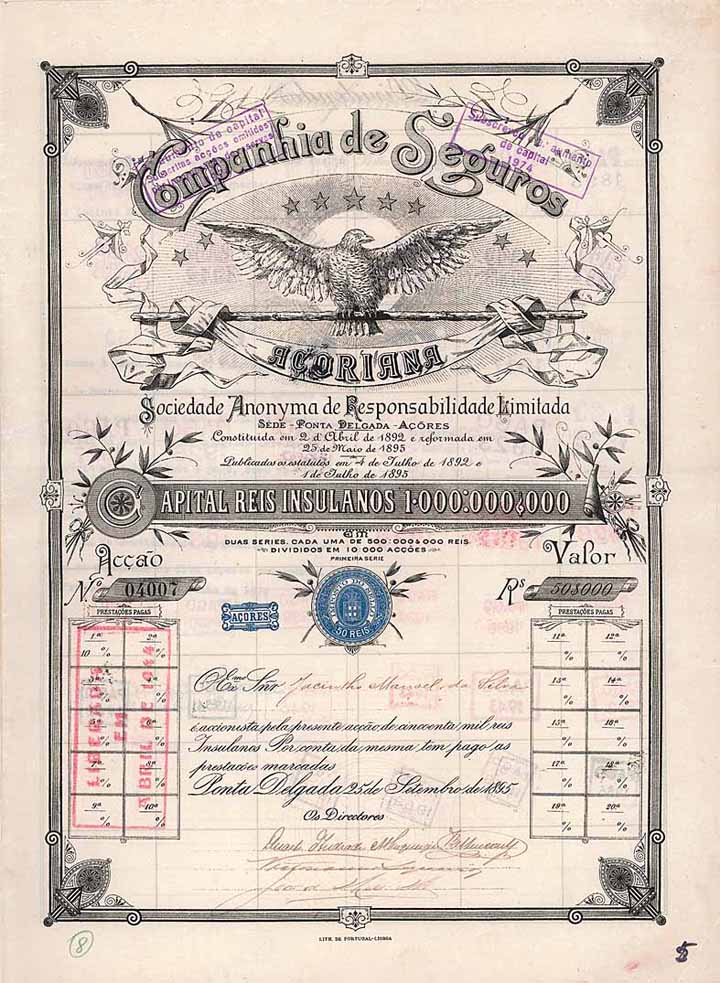 Companhia de Seguros
de capital
Subscreveu o aumento
de capital
1974
AÇORIANA
Sociedade Anonyma de Responsabilidade Limitada
SÉDE - PONTA DELGADA - AÇÔRES
Constituida em 2 d'Abril de 1892 e reformada em
25 de Maio de 1895
Publicados os estatutos em 4 de Julho de 1892 e
1 de Julho de 1895
CAPITAL REIS INSULANOS 1·000:000$000
Em
DUAS SERIES, CADA UMA DE 500:000$000 REIS
DIVIDIDOS EM 10 000 ACÇÕES
PRIMEIRA SERIE
Acção
Valor
Nº 04007
Rs 50$000
PRESTAÇÕES PAGAS
PRESTAÇÕES PAGAS
AÇORES
50 REIS
1ª 2ª
10 % %
3ª 4ª
% %
5ª 6ª
% %
7ª 8ª
% %
9ª 10ª
% %
LIBERADA
EM
ABRIL DE 1944
11ª 12ª
% %
13ª 14ª
% %
15ª 16ª
% %
17ª 18ª
% %
19ª 20ª
% %
Exmo Snr Jacintho Manoel da Silva
é accionista pela presente acção de cincoenta mil reis
Insulanos Por conta da mesma tem pago as
prestações marcadas
Ponta Delgada 25 de Setembro de 1895
Os Directores
LITH. DE PORTUGAL-LISBOA
8